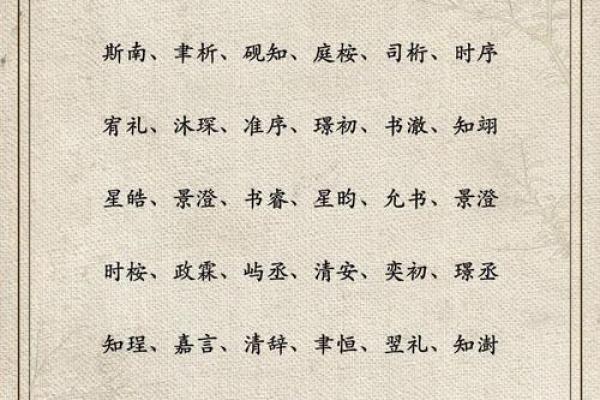 斯南、聿析、砚知、庭桉、司桁、时序
宥礼、沐琛、准序、璟初、书澈、知翊
星皓、景澄、书睿、星昀、允书、景澄
时桉、政霖、屿丞、清安、奕初、璟丞
知珵、嘉言、清辞、聿恒、翌礼、知澍